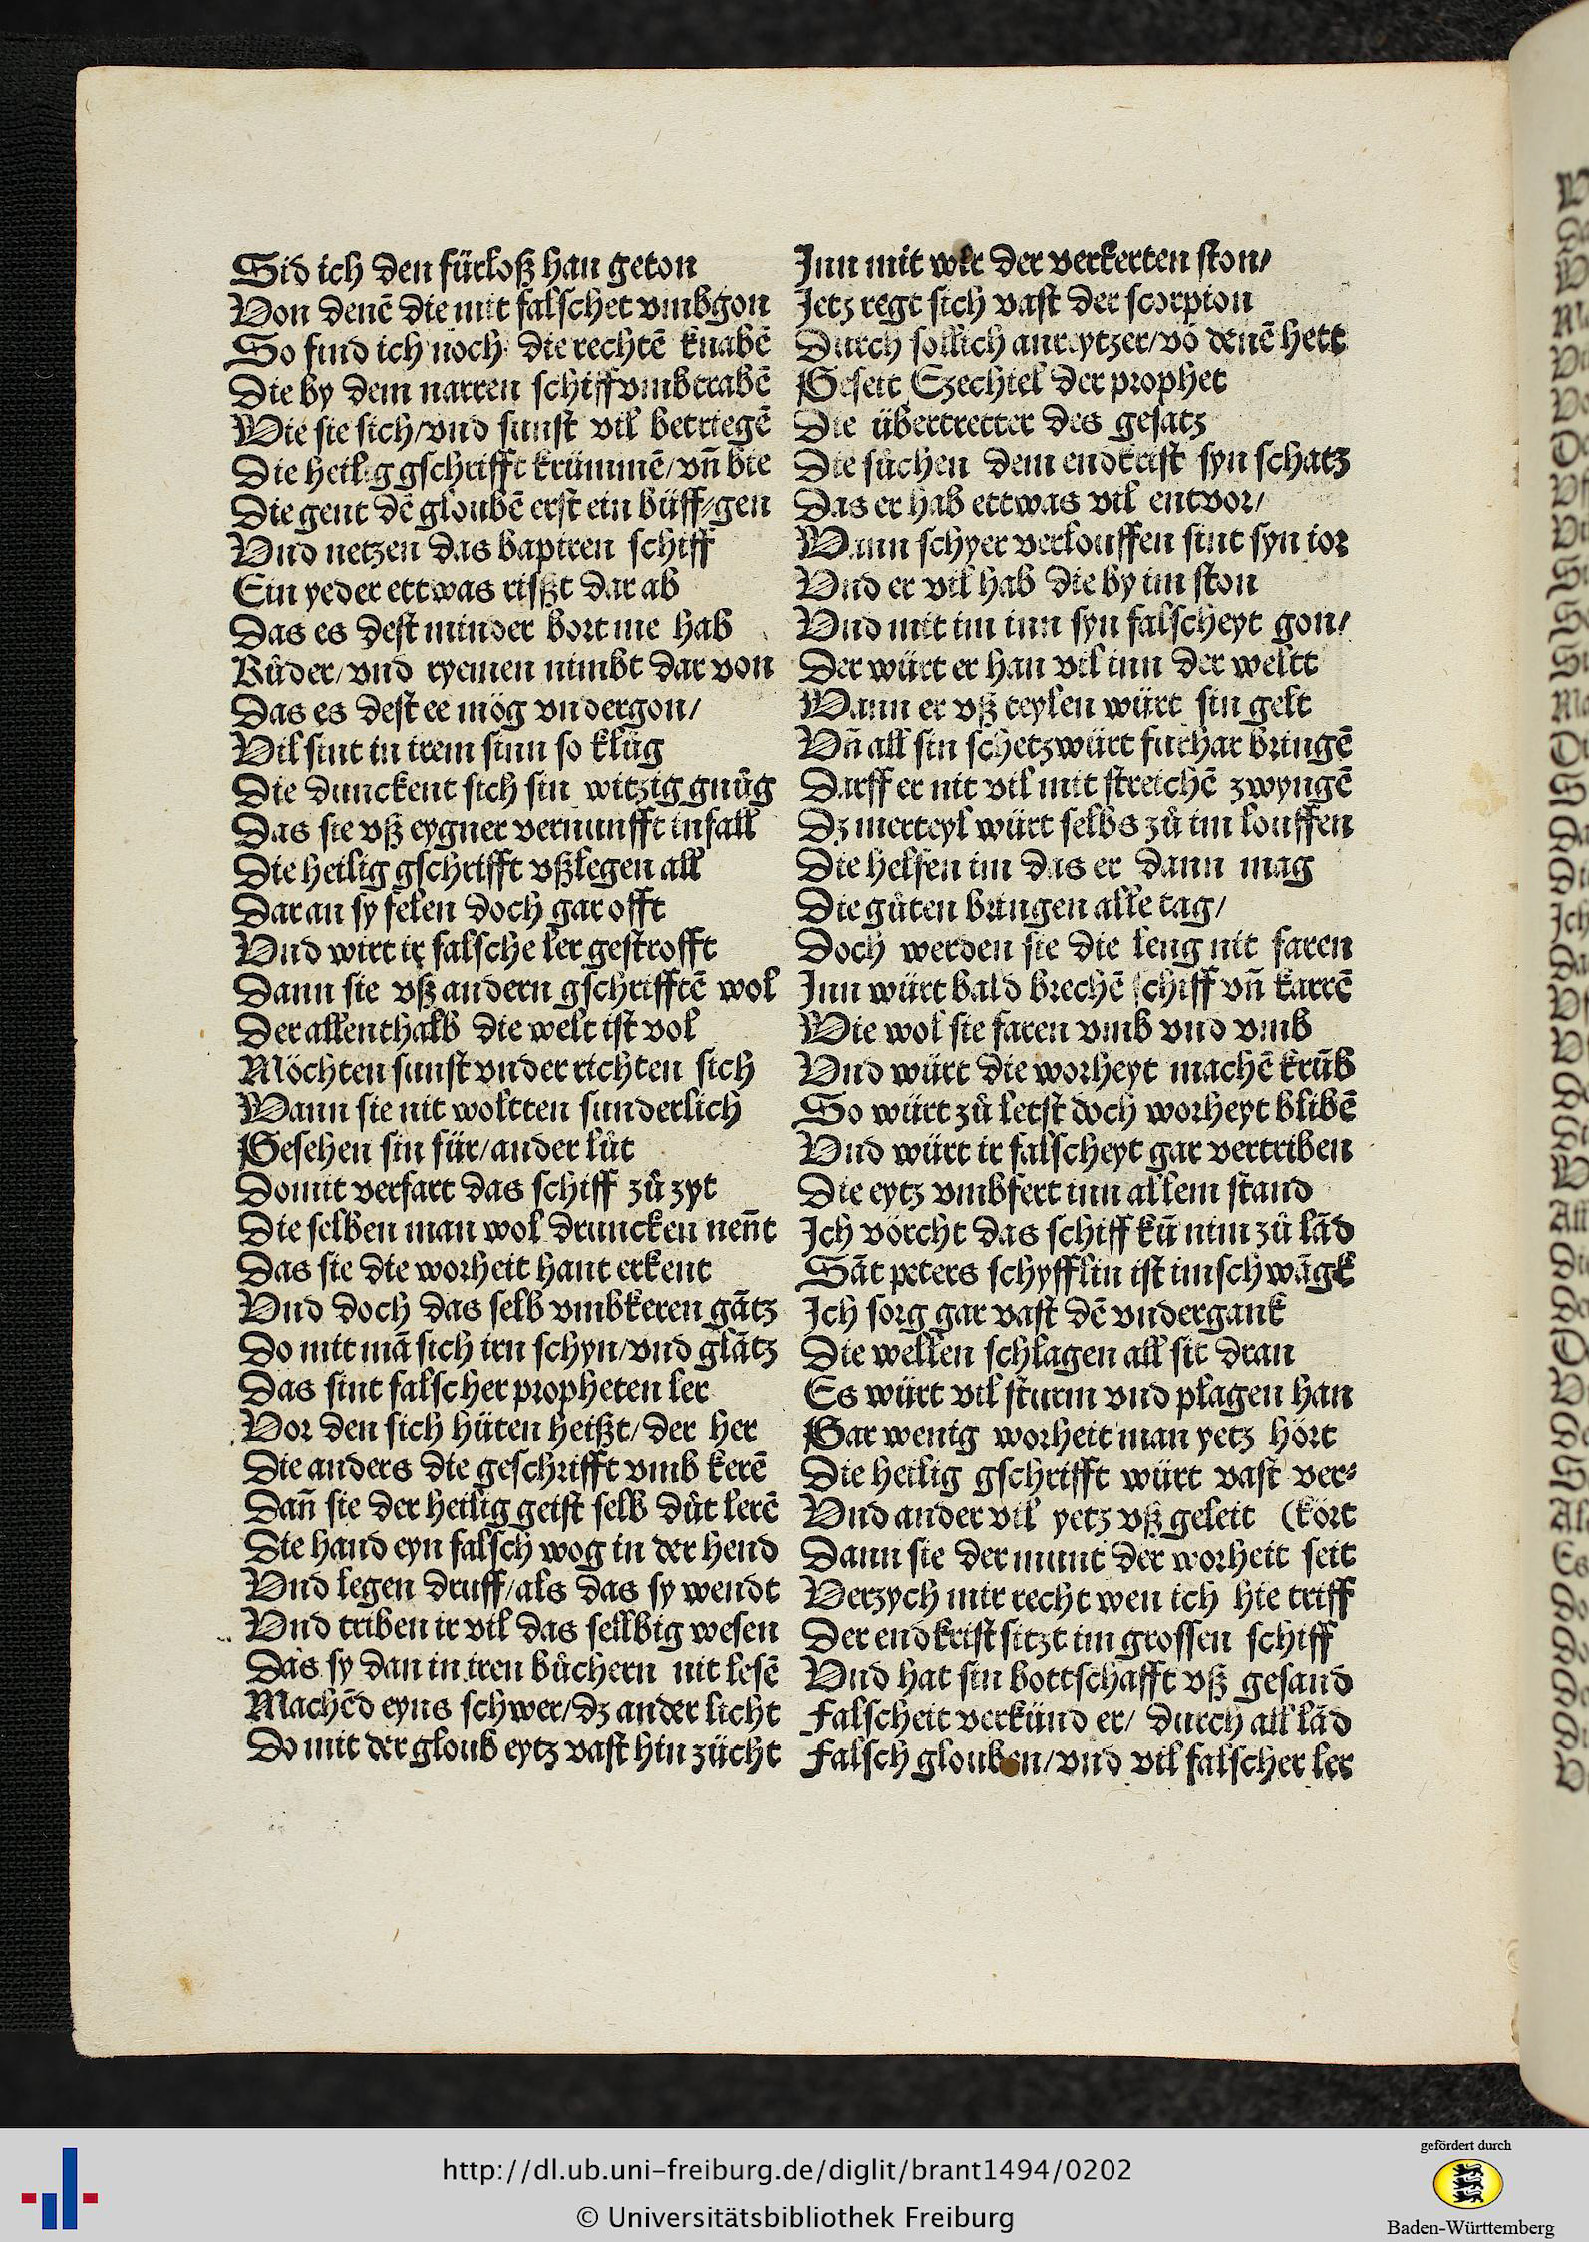 Sid ich den fürloß han geton
Von denē die mit falschet vmbgon
So find ich noch die rechtē knabē
Die by dem narren schiff vmbtrabē
Wie sie sich/vnd sunst vil betriegē
Die heilig gschrifft krümmē/vn̄ bie
Die gent dē gloubē erst ein büff/gen
Vnd netzen das bapiren schiff
Ein yeder ettwas rißt dar ab
Das es dest minder bort me hab
Růder/vnd ryemen nimbt dar von
Das es dest ee mög vndergon/
Vil sint in irem sinn so klůg
Die dunckent sich sin witzig gnůg
Das sie vß eygner vernunfft infall
Die heilig gschrifft vßlegen all
Dar an sy felen doch gar offt
Vnd wirt ir falsche ler gestrofft
Dann sie vß andern gschrifftē wol
Der allenthalb die welt ist vol
Möchten sunst vnderrichten sich
Wann sie nit woltten sunderlich
Gesehen sin für/ander lüt
Domit verfart das schiff zů zyt
Die selben man wol druncken nen̄t
Das sie die worheit hant erkent
Vnd doch das selb vmbkeren gātz
Do mit mā sich irn schyn/vnd glātz
Das sint falscher propheten ler
Vor den sich hüten heißt/der her
Die anders die geschrifft vmb kerē
Dan̄ sie der heilig geist selb důt lerē
Die hand eyn falsch wog in der hend
Vnd legen druff/als das sy wendt
Vnd triben ir vil das sellbig wesen
Das sy dan in iren bůchern nit lesē
Machēd eyns schwer/dz ander licht
Do mit der gloub eytz vast hin zücht
Inn mit wir der verkerten ston/
Jetz regt sich vast der scorpion
Durch sollich anreytzer/vō denē hett
Geseit Ezechiel der prophet
Die übertretter des gesatz
Die sůchen dem endkrist syn schatz
Das er hab ettwas vil entvor/
Wann schyer verlouffen sint syn ior
Vnd er vil hab die by im ston
Vnd mit im inn syn falscheyt gon/
Der würt er han vil inn der weltt
Wann er vß teylen würt sin gelt
Vn̄ all sin schetz würt furhar bringē
Darff er nit vil mit streichē zwyngē
Dz merteyl würt selbs zů im louffen
Die helfen im das er dann mag
Die gůten bringen alle tag/
Doch werden sie die leng nit faren
Inn würt bald brechē schiff vn̄ karrē
Wie wol sie faren vmb vnd vmb
Vnd würt die worheyt machē krūb
So würt zů letst doch worheyt blibē
Vnd würt ir falscheyt gar vertriben
Die eytz vmbfert inn allem stand
Ich vörcht das schiff kū nim zů lād
Sāt peters schyfflin ist im schwāgk
Ich sorg gar vast dē vndergank
Die wellen schlagen all sit dran
Es würt vil sturm vnd plagen han
Gar wenig worheit man yetz hört
Die heilig gschrifft würt vast ver⸗
Vnd ander vil yetz vß geleit (kört
Dann sie der munt der worheit seit
Verzych mir recht wen ich hie triff
Der endkrist sitzt im grossen schiff
Vnd hat sin bottschafft vß gesand
Falscheit verkünd er/ durch all lād
Falsch glouben/vnd vil falscher ler
http://dl.ub.uni-freiburg.de/diglit/brant1494/0202
© Universitätsbibliothek Freiburg
gefördert durch
Baden-Württemberg